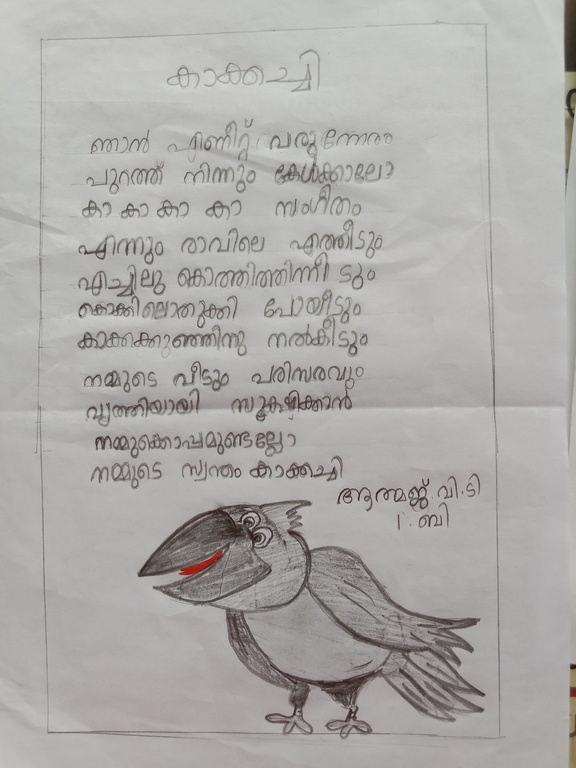 കാക്കച്ചി
ഞാൻ എണീറ്റ് വരുന്നേരം
പുറത്ത് നിന്നും കേൾക്കാലോ
കാ കാ കാ കാ സംഗീതം
എന്നും രാവിലെ എത്തീടും
എച്ചിലു കൊത്തിത്തിന്നീ ടും
കൊക്കിലൊതുക്കി പോയീടും
കാക്കക്കുഞ്ഞിനു നൽകീടും
നമ്മുടെ വീടും പരിസരവും
വൃത്തിയായി സൂക്ഷിക്കാൻ
നമ്മുക്കൊപ്പമുണ്ടല്ലോ
നമ്മുടെ സ്വന്തം കാക്കച്ചി
ആത്മജ്.വി.ടി
1. ബി